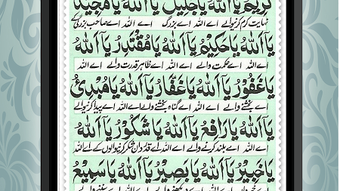 كَرِيْمُ يَا اَللّٰهُ يَا جَلِيْلُ يَا اَللّٰهُ يَا مَجِيْدُ
نہایت کرم کرنیوالے اے اللہ اے بزرگ اے اللہ اے صاحب بزرگی
يَا اَللّٰهُ يَا حَكِيْمُ يَا اَللّٰهُ يَا مُقْتَدِرُ يَا اَللّٰهُ
اے اللہ اے حکمت والے اے اللہ اے ظاہر قدرت والے اے اللہ
يَا غَفُوْرُ يَا اَللّٰهُ يَا غَفَّارُ يَا اَللّٰهُ يَا مُبْدِئُ
اے بخشنے والے اے اللہ اے گناہ بخشنے والے اے اللہ اے پیدا کرنیوالے
يَا اَللّٰهُ يَا رَافِعُ يَا اَللّٰهُ يَا شَكُوْرُ يَا اَللّٰهُ
اے اللہ اے بلند کرنے والے اے اللہ اے قدردان شکر کرنیوالوں کے اے اللہ
يَا خَبِيْرُ يَا اَللّٰهُ يَا بَصِيْرُ يَا اَللّٰهُ يَا سَمِيْعُ